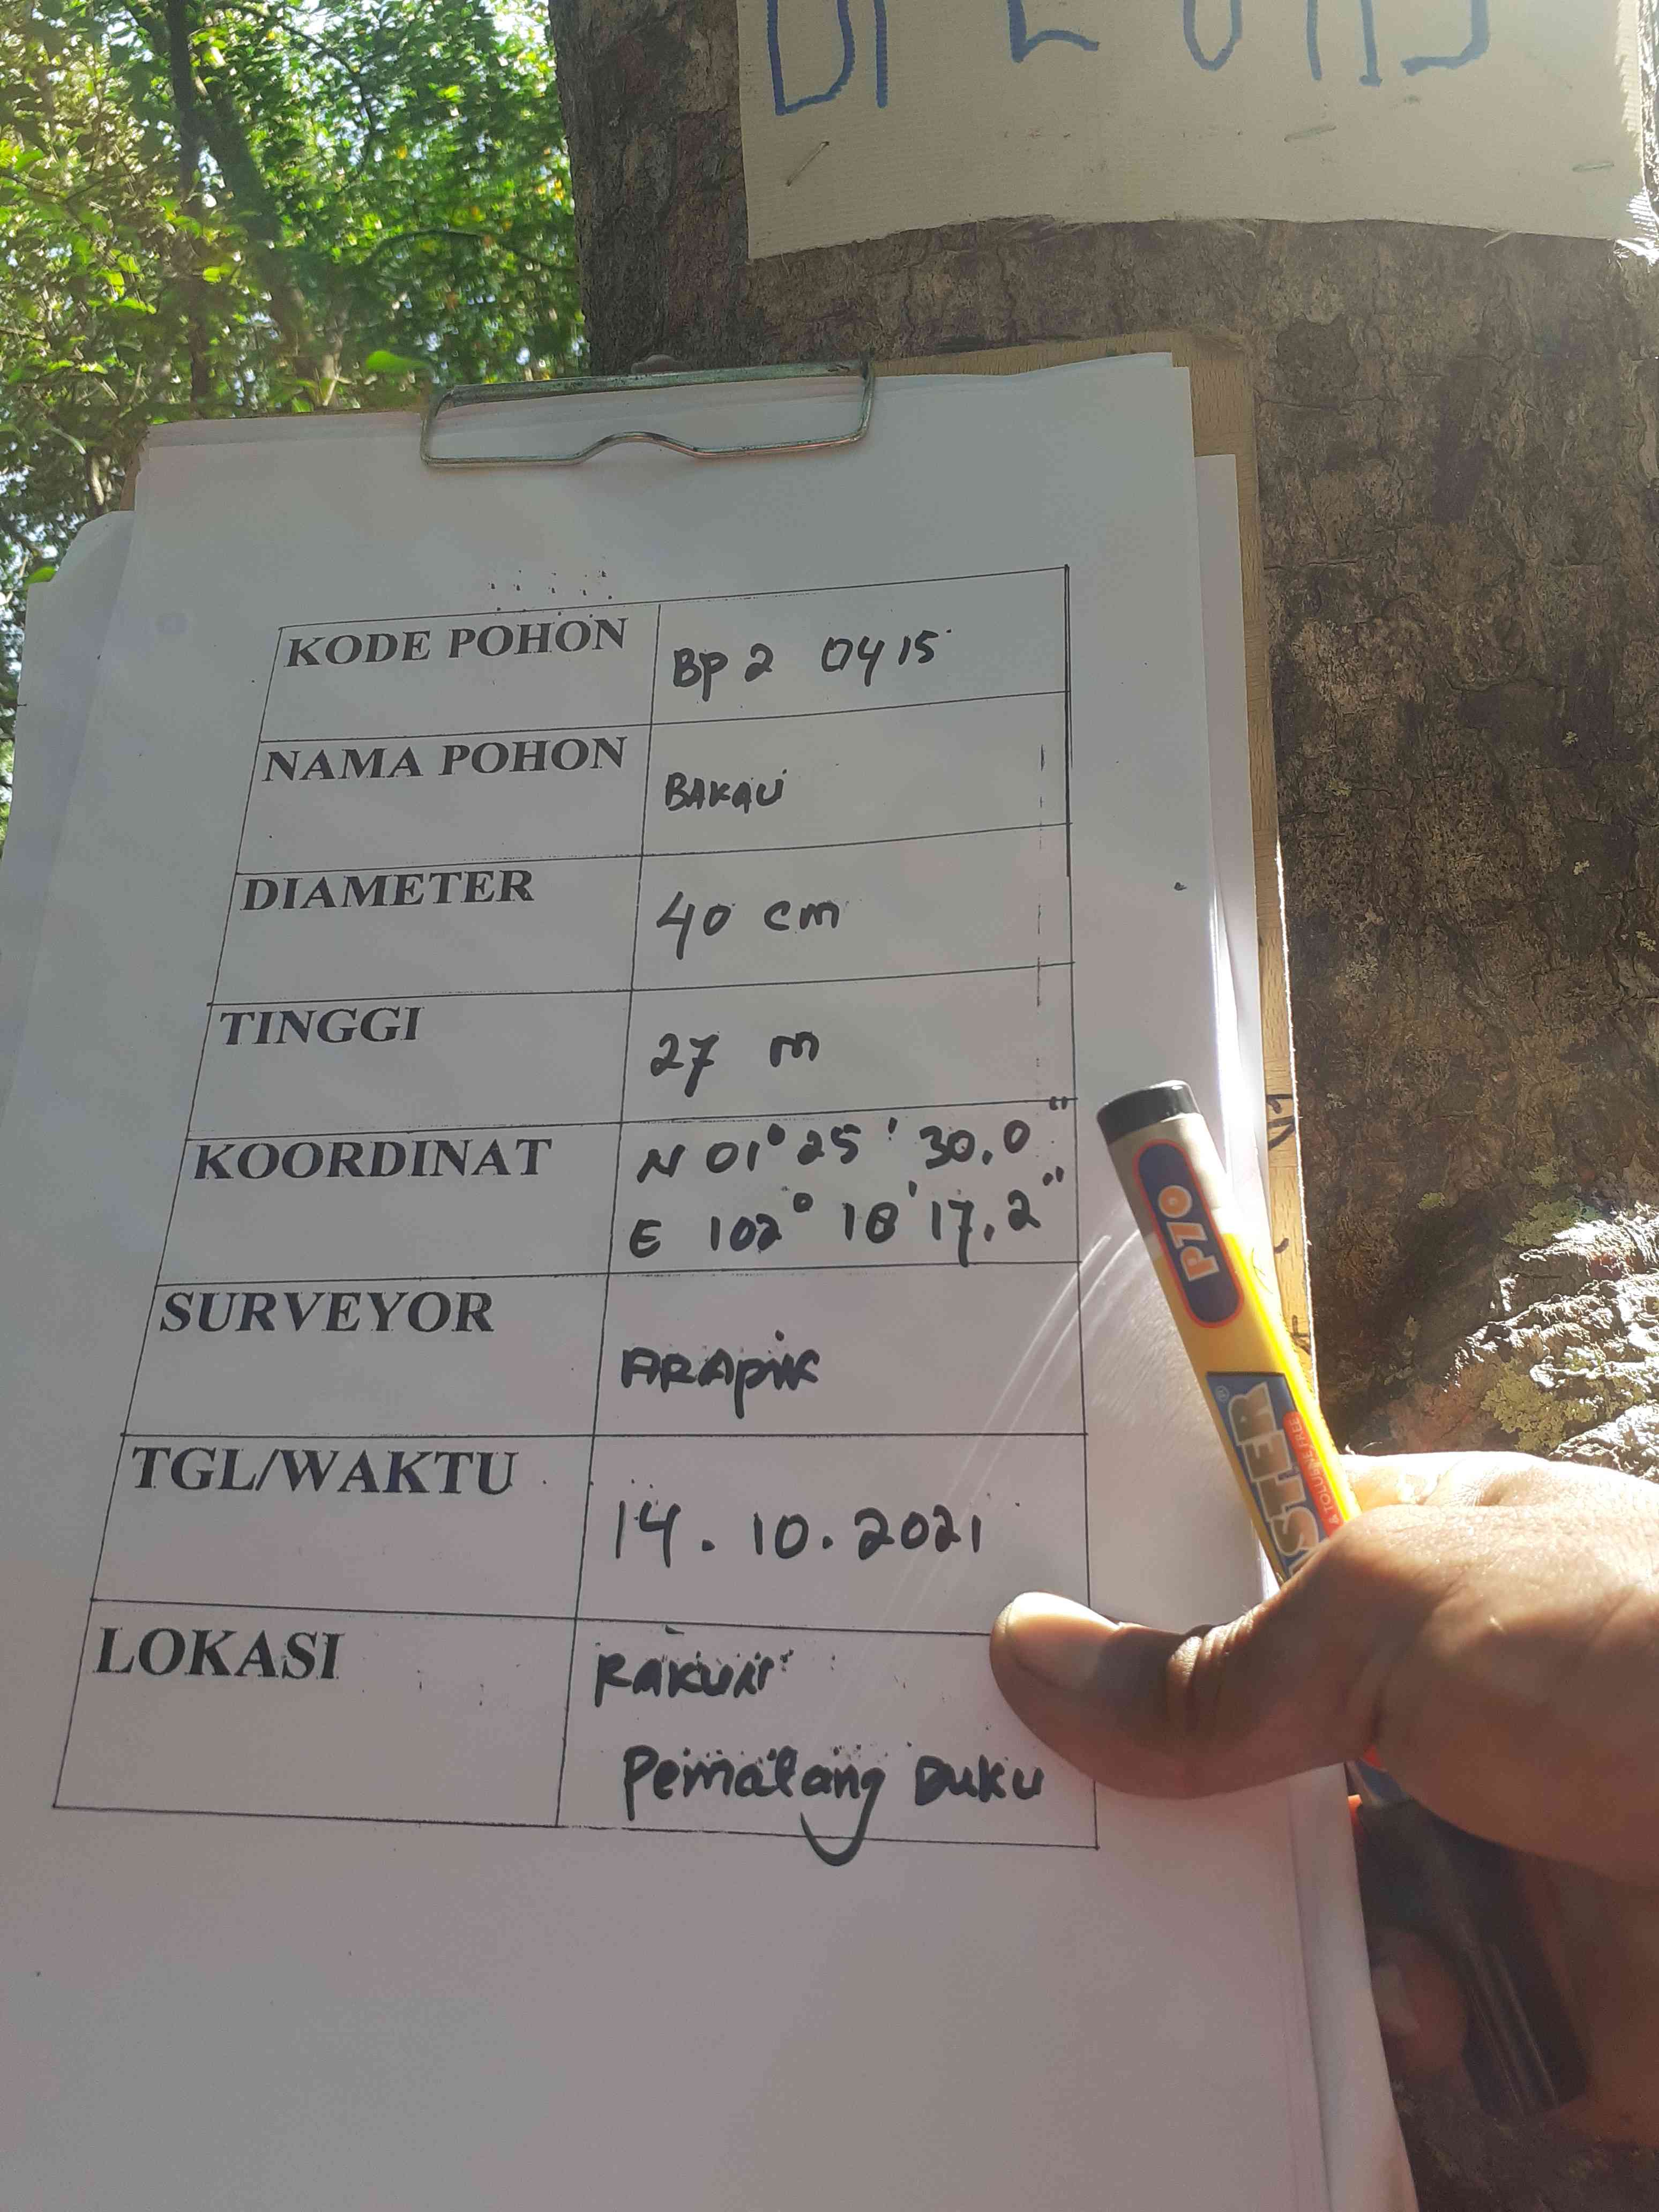 KODE POHON Bp 2 0415
NAMA POHON BAKAU
DIAMETER 40 cm
TINGGI 27 m
KOORDINAT N 01° 25' 30,0"
E 102° 18' 17,2"
SURVEYOR ARAPIK
TGL/WAKTU 14.10.2021
LOKASI
Pematang Duku
P70
& TOLUENE FREE